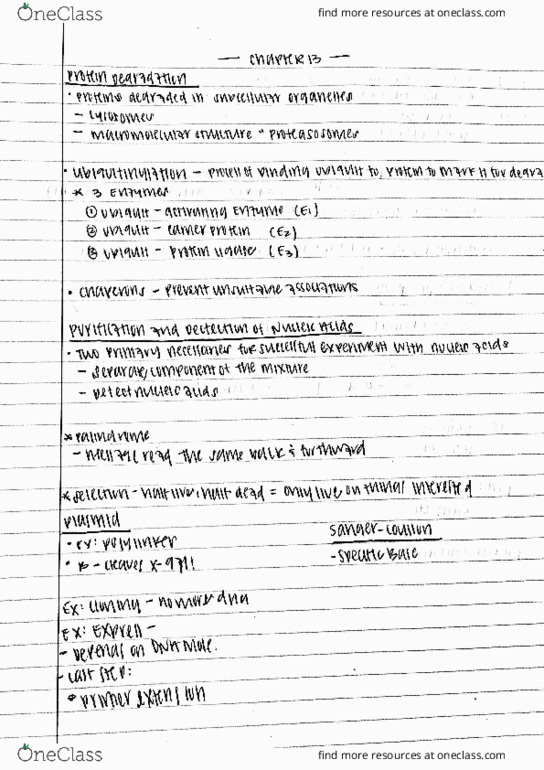 OneClass
find more resources at oneclass.com
— Chapter 13 —
Protein Degradation
• Proteins degraded in subcellular organelles
- Lysosomes
- macromolecular structure "proteasosomes
• ubiquitinylation - process of binding ubiquit to, protein to mark it for degra
* 3 Enzymes
① ubiquit - activating Enzyme (E1)
② ubiquit - carrier protein (E2)
③ ubiquit - Protein ligase (E3)
• chaperons - prevent unsuitable associations
Purification and Detection of Nucleic Acids
• Two primary necessities for successful experiment with nucleic acids
- separate component of the mixture
- Detect nucleic acids
* Palindrome
- message read the same back & forthward
* selection - half live; half dead = only live on interested
Plasmid
Sanger-coulson
• Ex: polylinker
- specific base
• B - cleaves X-gal
Ex: cloning - no more dna
Ex: Express -
- Depends on DNA
- Last step:
• primer extension
OneClass
find more resources at oneclass.com